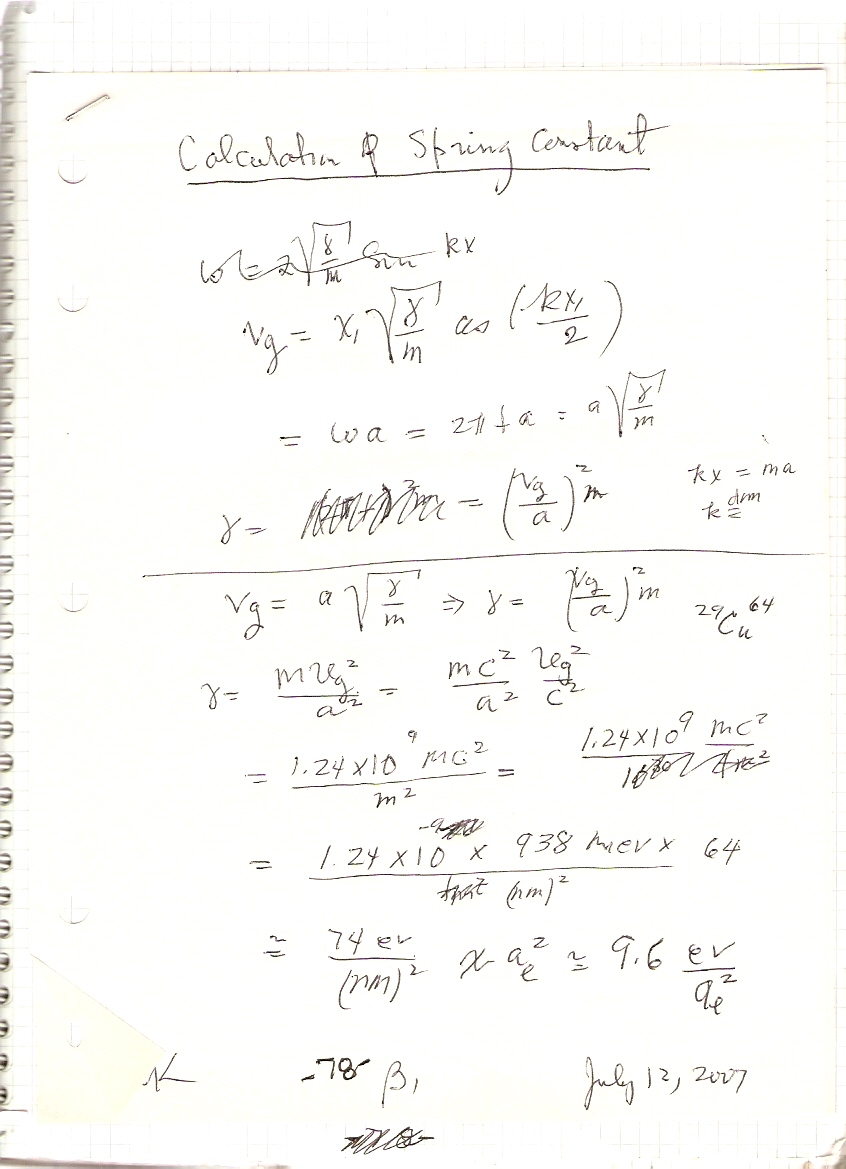 Calculation of Spring Constant
ω = 2√(γ/m) Sin kx
vg = x₁ √(γ/m) cos (kx₁/2)
= ωa = 2πfa = a√(γ/m)
kx = ma
γ = = (vg/a)² m
vg = a √(γ/m) ⇒ γ = (vg/a)² m
²⁹Cu⁶⁴
γ = m vg²/a² = mc²/a² vg²/c²
= 1.24 × 10⁹ mc²/m² = 1.24 × 10⁹ mc²
= 1.24 × 10⁻⁹ × 938 mev × 64/(nm)²
≃ 74 ev/(nm)² × aₑ² ≃ 9.6 ev/aₑ²
-78 β₁ July 12, 2007